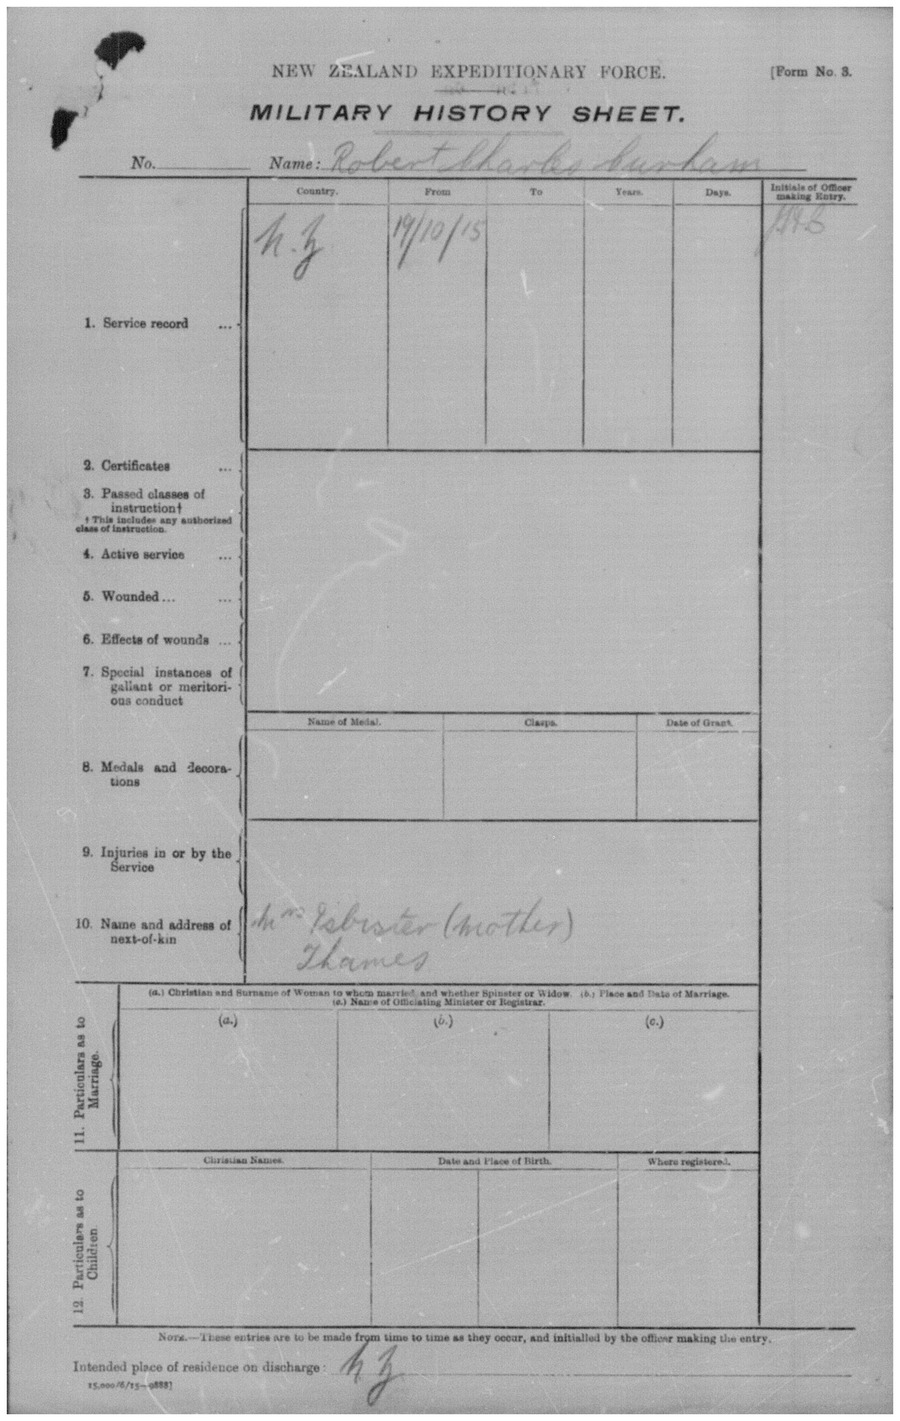 NEW ZEALAND EXPEDITIONARY FORCE.
[Form No. 3.
MILITARY HISTORY SHEET.
No. Name: Robert Charles Curham
Country. From To Years. Days. Initials of Officer making Entry.
N.Z 19/10/15
1. Service record ...
2. Certificates ...
3. Passed classes of
instruction†
† This includes any authorized
class of instruction.
4. Active service ...
5. Wounded ... ...
6. Effects of wounds ...
7. Special instances of
gallant or meritori-
ous conduct
Name of Medal. Clasps. Date of Grant.
8. Medals and decora-
tions
9. Injuries in or by the
Service
10. Name and address of
next-of-kin
Mrs Isbister (mother)
Thames
11. Particulars as to
Marriage.
(a.) Christian and Surname of Woman to whom married, and whether Spinster or Widow. (b.) Place and Date of Marriage.
(c.) Name of Officiating Minister or Registrar.
(a.) (b.) (c.)
12. Particulars as to
Children.
Christian Names. Date and Place of Birth. Where registered.
NOTE.—These entries are to be made from time to time as they occur, and initialled by the officer making the entry.
Intended place of residence on discharge: N.Z.
15,000/6/15—9888]